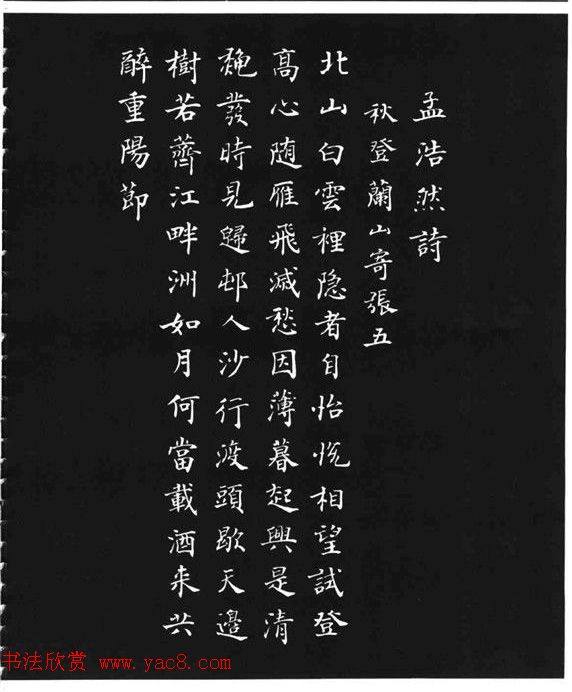 孟浩然詩
秋登蘭山寄張五
北山白雲裡隐者自怡悦相望試登
高心随雁飛滅愁因薄暮起興是清
穐發時見歸邨人沙行渡頭歇天邊
樹若薺江畔洲如月何當載酒来共
醉重陽節
书法欣赏 www.yac8.com